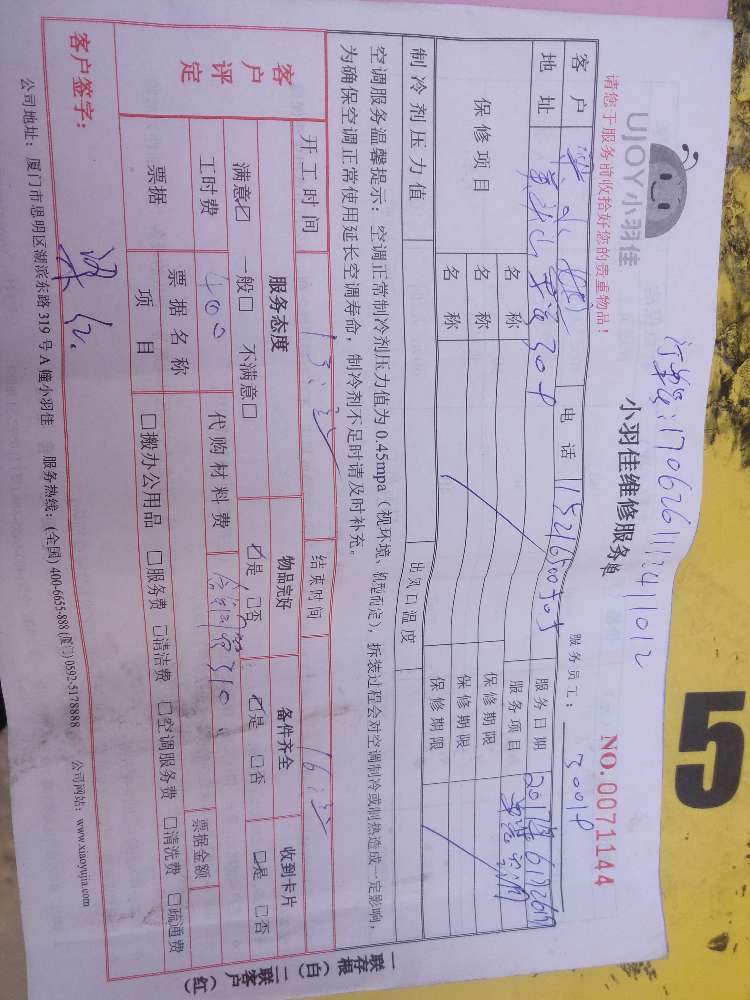 订单号:1706261112411012
UJOY小羽佳
小羽佳维修服务单
NO.0071144
请您于服务前收拾好您的贵重物品！
服务员工：
客户
电话
服务日期 2017年6月26日
地址
服务项目
保修项目
名称
保修期限
名称
保修期限
名称
保修期限
制冷剂压力值
出风口温度
空调服务温馨提示：空调正常制冷剂压力值为0.45mpa（视环境、机型而定），拆装过程会对空调制冷或制热造成一定影响，
为确保空调正常使用延长空调寿命，制冷剂不足时请及时补充。
开工时间
结束时间
客户评定
服务态度
物品完好
备件齐全
收到卡片
满意☑ 一般□ 不满意□
☑是 □否
☑是 □否
□是 □否
工时费 400
代购材料费
票据
票据名称
票据金额
项目
□搬办公用品 □服务费 □清洁费 □空调服务费 □清洗费 □疏通费
客户签字：
公司地址：厦门市思明区湖滨东路319号A幢小羽佳 服务热线：(全国) 400-6655-888 (厦门) 0592-5178888 公司网站：www.xiaoyujia.com
一联存根（白）二联客户（红）
5